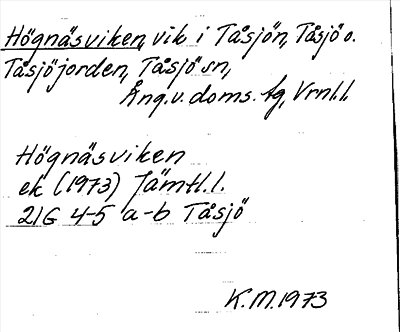 Högnäsviken, vik i Tåsjön, Tåsjö o.
Tåsjöjorden, Tåsjö sn,
Ång.v. doms. tg, Vrnl.l.
Högnäsviken
ek (1973) Jämtl.l.
21G 4-5 a-b Tåsjö
K.M. 1973